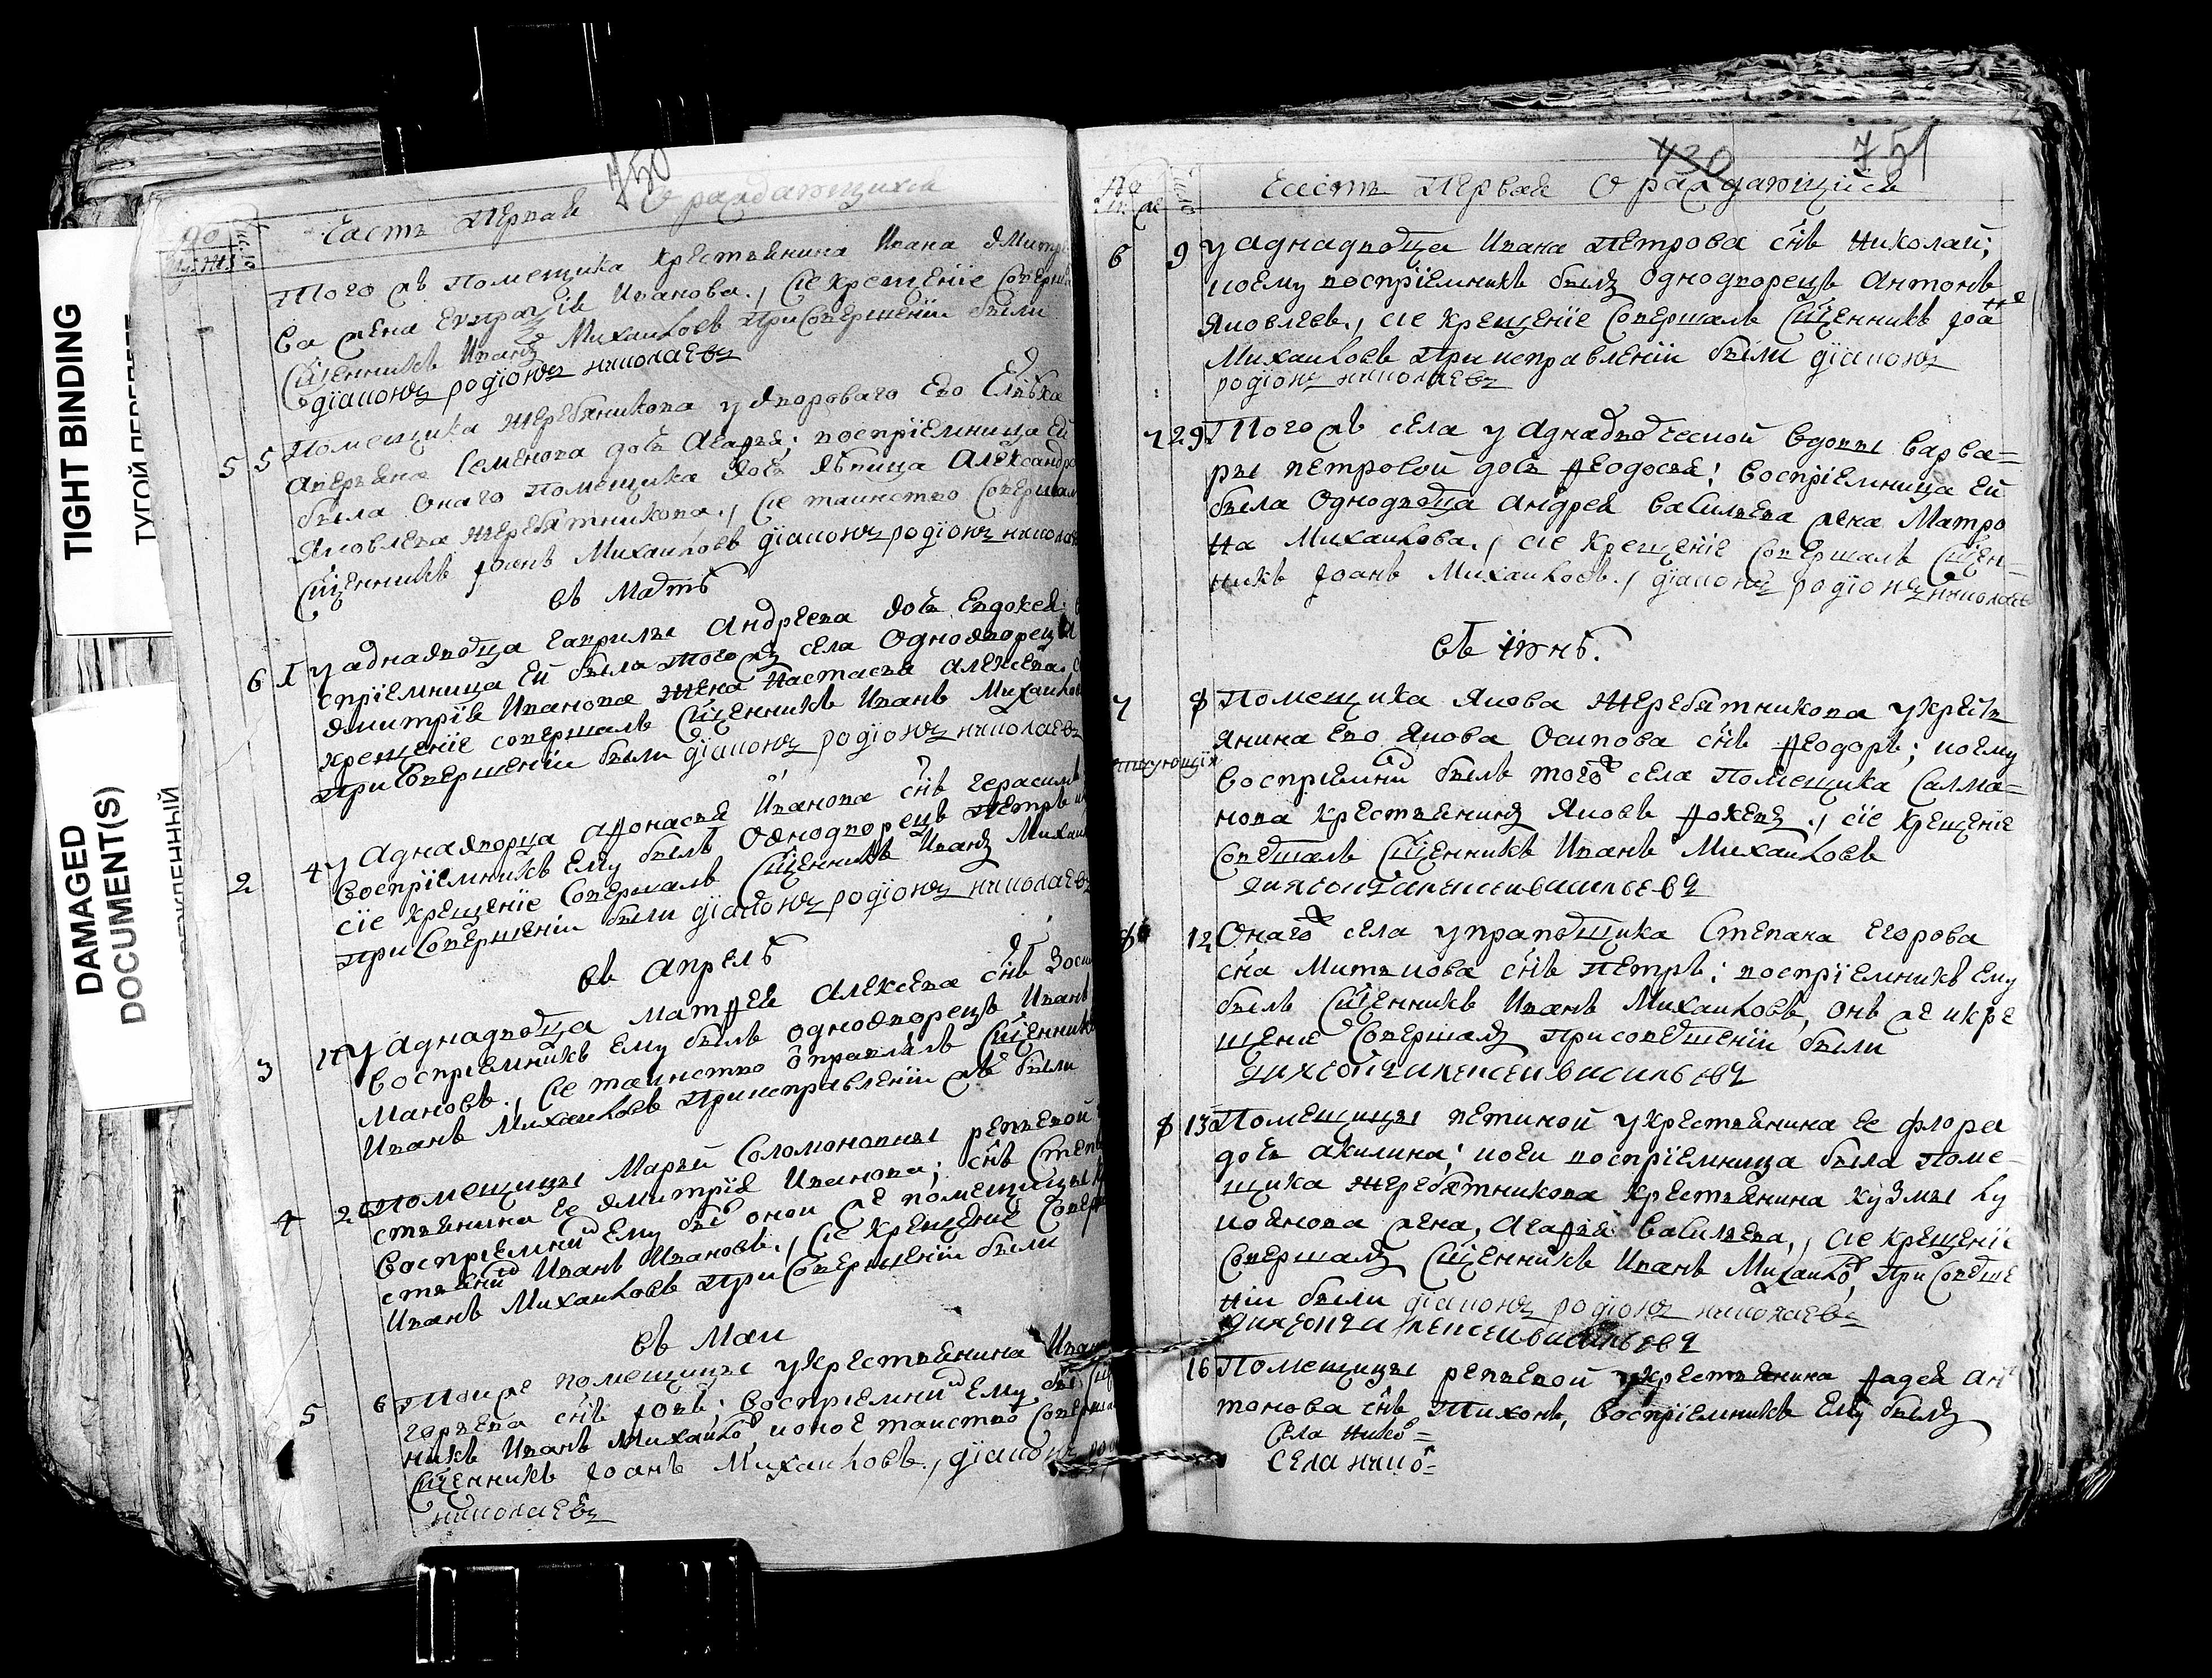 TIGHT BINDING
ТУГОЙ ПЕРЕПЛЕТ
DAMAGED
DOCUMENT(S)
DOCUMENT(S)
750
Часть Первая О раждающихся
Того жъ помещика крестьянина Ивана Дмитри
ва жена Евпраѯія Иванова., Сіе крещеніе Соверш
Сщенникъ Иванъ Михаиловъ При Совершеніи были
діаконъ родіонъ николаевъ
5 5 Помещика Жеребятникова у двороваго Ево
Аверьяна Семенова дочь Агаѳья; восприемница ей
была Онаго Помещика дочь девица Александра
Яковлева Жеребятникова., Сіе таинство Соверша
Сщенникъ Іоанъ Михаиловъ діаконъ родіонъ никола
въ Мартѣ
6 1 У аднадворца Гаврилы Андреева дочь Евдокея;
сприемница ей была того жъ села Однодворец
Дмитрія Иванова жена Настасья Алексева,
крещеніе совершалъ Сщенникъ Иванъ Михаило
При Совершеніи были діаконъ родіонъ николаевъ
2 4 У Аднадворца Аѳонасья Иванова снъ Герасимъ
Восприемникъ Ему былъ Однодворецъ Петръ
сіе Крещеніе Совершалъ Сщенникъ Иванъ Михаи
При Совершеніи были діаконъ родіонъ николаевъ
въ Апрелѣ
3 У Аднадворца Матѳея Алексева снъ
Восприемникъ Ему былъ однодворецъ Иванъ
мановъ., Се таинство отправлялъ Сщенникъ
Иванъ Михаиловъ При исправленіи жъ были
4 Помещицы Марьи Соломоновны репьевой
стьянина Ее Дмитрія Иванова; снъ Степ
Восприемни Ему бы оной же помещицы
стьяни Иванъ Ивановъ., Сіе Крещеніе Совер
Иванъ Михаиловъ При Совершеніи были
въ Маи
5 6 Той же помещицы у крестьянина Иван
снъ Іовъ; Восприемни Ему бы
никъ Иванъ Михаило, и оное таиство Соверша
Сщенникъ Іоанъ Михаиловъ., діаконъ
николаевъ
430 751
Часть Первая О раждающихся
6 9 У аднадворца Ивана Петрова снъ Николай;
коему восприемникъ былъ однодворецъ Антонъ
Яковлевъ., сіе крещеніе Совершалъ Сщенникъ Іоанъ
Михаиловъ При исправленіи были діаконъ
родіонъ николаевъ
7 29 Того жъ села у Аднадворческой вдовы Варва=
ры Петровой дочь Ѳеодосья; Восприемница Ей
была Однодворца Андрея Васильева жена Матро
на Михаилова., сіе Крещеніе Совершалъ Сщен=
никъ Іоанъ Михаиловъ., діаконъ родіонъ николаев
въ іюнѣ.
7 8 Помещика Якова Жеребятникова у крейть
янина ево Якова Осипова снъ Ѳеодоръ; коему
Восприемни былъ того села Помещика Салма=
нова Крестьянинъ Яковъ Ѳокевъ., сіе Крещеніе
Совершалъ Сщенникъ Иванъ Михаиловъ
дияконъ алексеи василъевъ
8 12 Онаго села у прапорщика Степана Егорова
сна Митькова снъ Петръ; восприемникъ Ему
былъ Сщенникъ Иванъ Михаиловъ, онъ же и кре
щеніе Совершалъ При совершеніи были
дияконъ алексеи василъевъ
8 13 Помещицы петиной у крестьянина ее флора
дочь Акилина; коей восприемница была поме=
щика Жеребятникова Крестьянина Кузмы Лу
коянова жена, Агаѳья Васильева., сіе крещеніе
Совершалъ Сщенникъ Иванъ Михаило, При Соверше
ніи были діаконъ родіонъ николаевъ
дияконъ алексеи василъевъ
16 Помещицы репьевой у крестьянина Ѳадея Ан
тонова снъ Тихонъ, Восприемникъ Ему былъ
Села Нико=
Села нико=